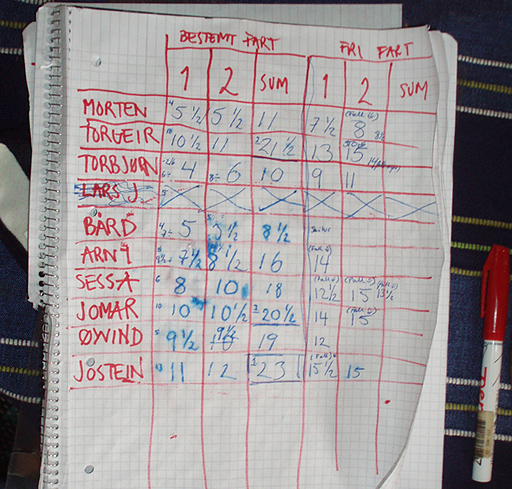 BESTEMT FART FRI FART
1 2 SUM 1 2 SUM
MORTEN 5 1/2 5 1/2 11 7 1/2 8
TORGEIR 10 1/2 11 21 1/2 13 15
TORBJØRN 4 6 10 9 11
LARS J
BÅRD 5 3 1/2 8 1/2
ARNT 7 1/2 8 1/2 16 14
SESSA 8 10 18 12 1/2 15 13 1/2
JOMAR 10 10 1/2 20 1/2 14 15
ØYVIND 9 1/2 9 1/2 19 12
JOSTEIN 11 12 23 15 1/2 15